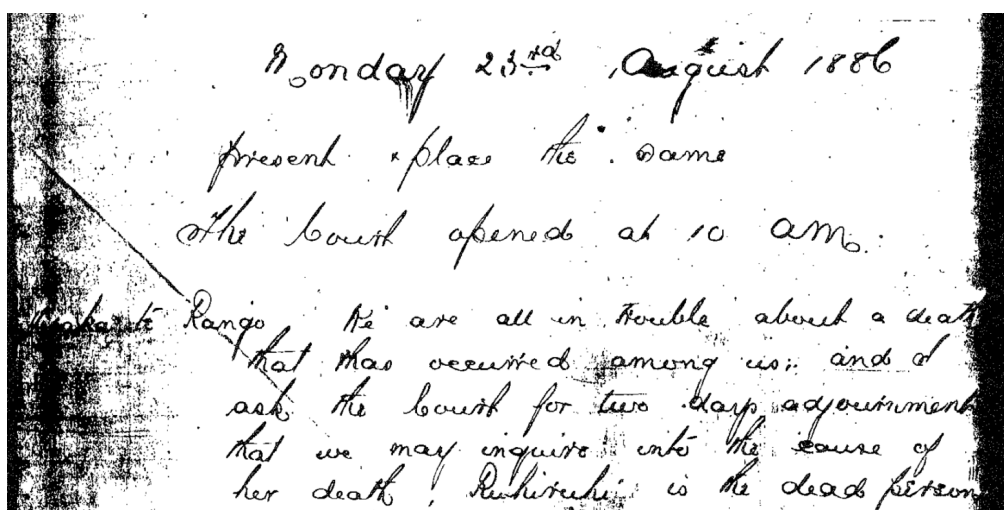 Monday 23rd August 1886
present & place the same
The Court opened at 10 am.
Rangi We are all in trouble about a death
that has occurred among us; and I
ask the Court for two days adjournment
that we may inquire into the cause of
her death. Ruhiruhi is the dead person